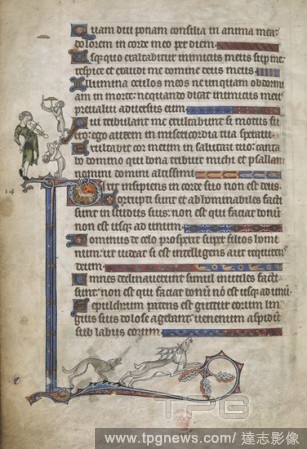 Quam diu ponam consilia in anima mea:
dolorem in corde meo per diem.
Usquequo exaltabitur inimicus meus sup me:
respice et exaudi me domine deus meus
Illumina oculos meos ne unquam obdormi
am in morte: nequando dicat inimicus meus
prevalui adversus eum
Qui tribulant me exultabunt si motus fu
ero: ego autem in misericordia tua speravi.
Exultabit cor meum in salutari tuo: canta
bo domino qui bona tribuit michi et psallam
nomini domini altissimi
14
Dixit insipiens in corde suo non est deus.
Corrupti sunt et abhominabiles facti
sunt in studiis suis: non est qui faciat bonū
non est usqȝ ad unum
Dominus de celo prospexit super filios homi
num: ut videat si est intelligens aut requirens
deum
Omnes declinaverunt simul inutiles facti
sunt: non est qui faciat bonū nō est usqȝ ad unū
Sepulchrum patens est guttur eorum lin
guis suis dolose agebant: venenum aspidū
sub labiis eorum.
TPG
www.tpgnews.com/達志影像